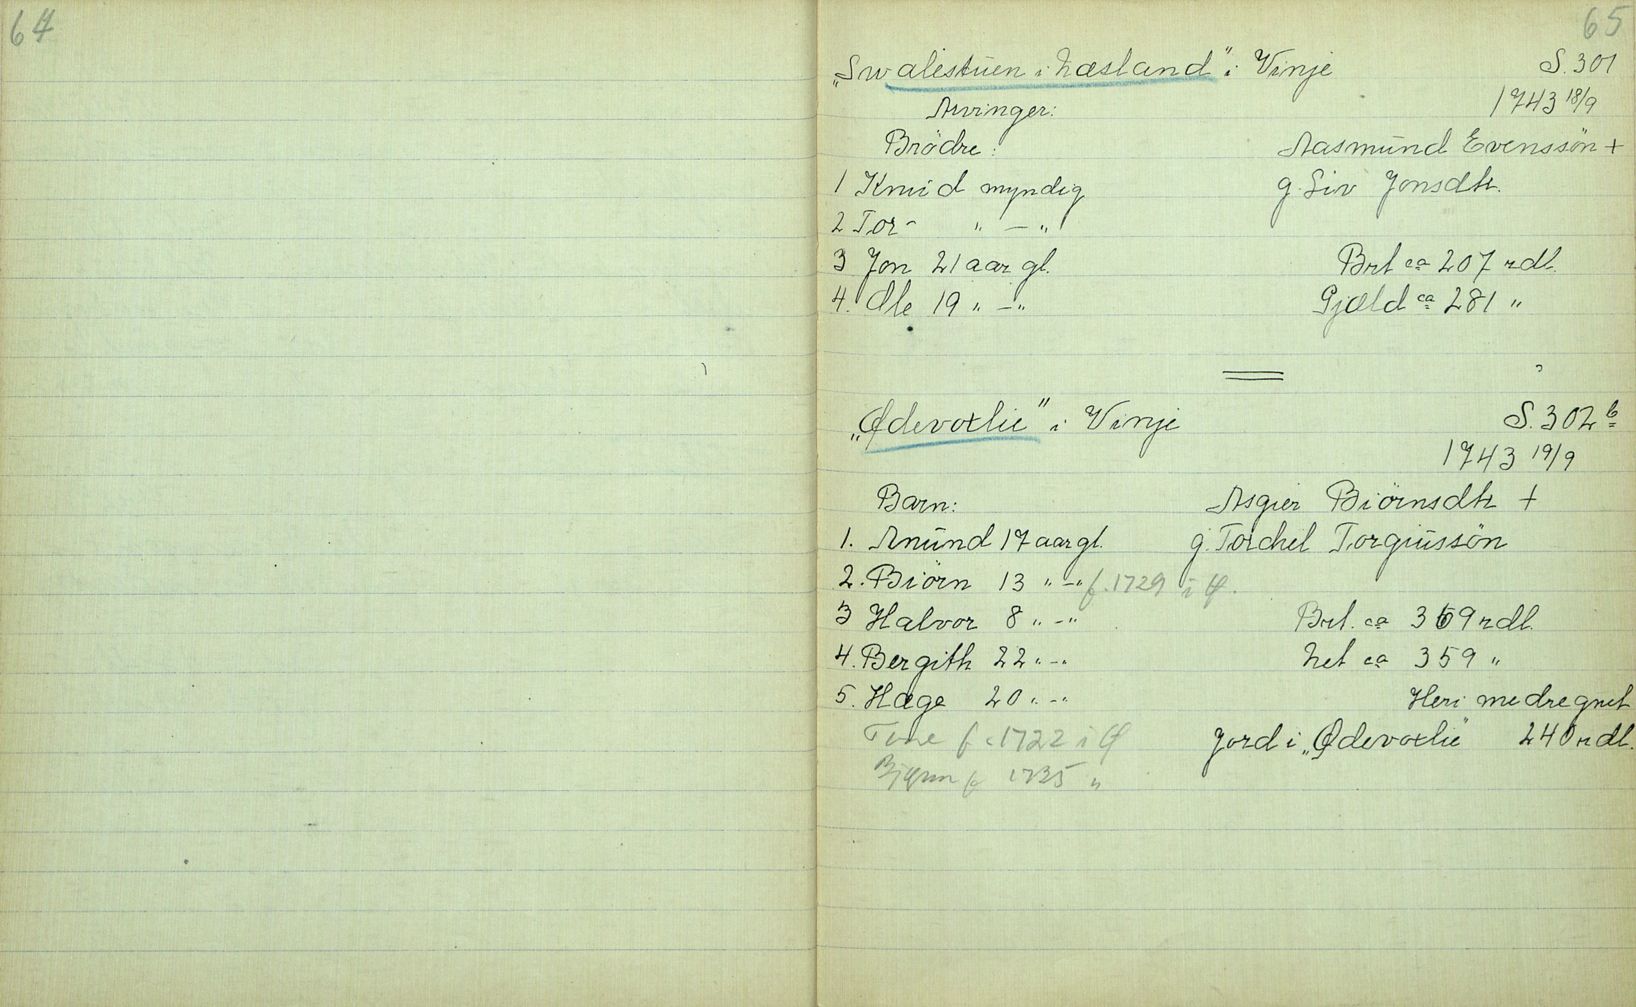 64
65
„Swalestuen i Næsland" i Vinje S. 301
Arvinger: 1743 18/9
Brödre: Aasmund Evenssön +
1 Knud myndig g. Siv Jonsdtr.
2 Tor - „ — „
3 Jon 21 aar gl. Brt ca 207 rdl.
4. Ole 19 „ — „ Gjæld ca 281 „
„Ødevoxlie" i Vinje S. 302 b
1743 19/9
Barn: Asgier Biörnsdtr +
1. Anund 17 aar gl. g. Torchel Torgiussön
2. Biörn 13 „ - „ f. 1729 i Ø.
3 Halvor 8 „ - „ Brt. ca 369 rdl.
4. Bergith 22 „ - „ Net ca 359 „
5. Hæge 20 „ - „ Heri medregnet
Tone f. 1722 i Ø Jord i „Ødevoxlie" 240 rdl.
f 1735 „